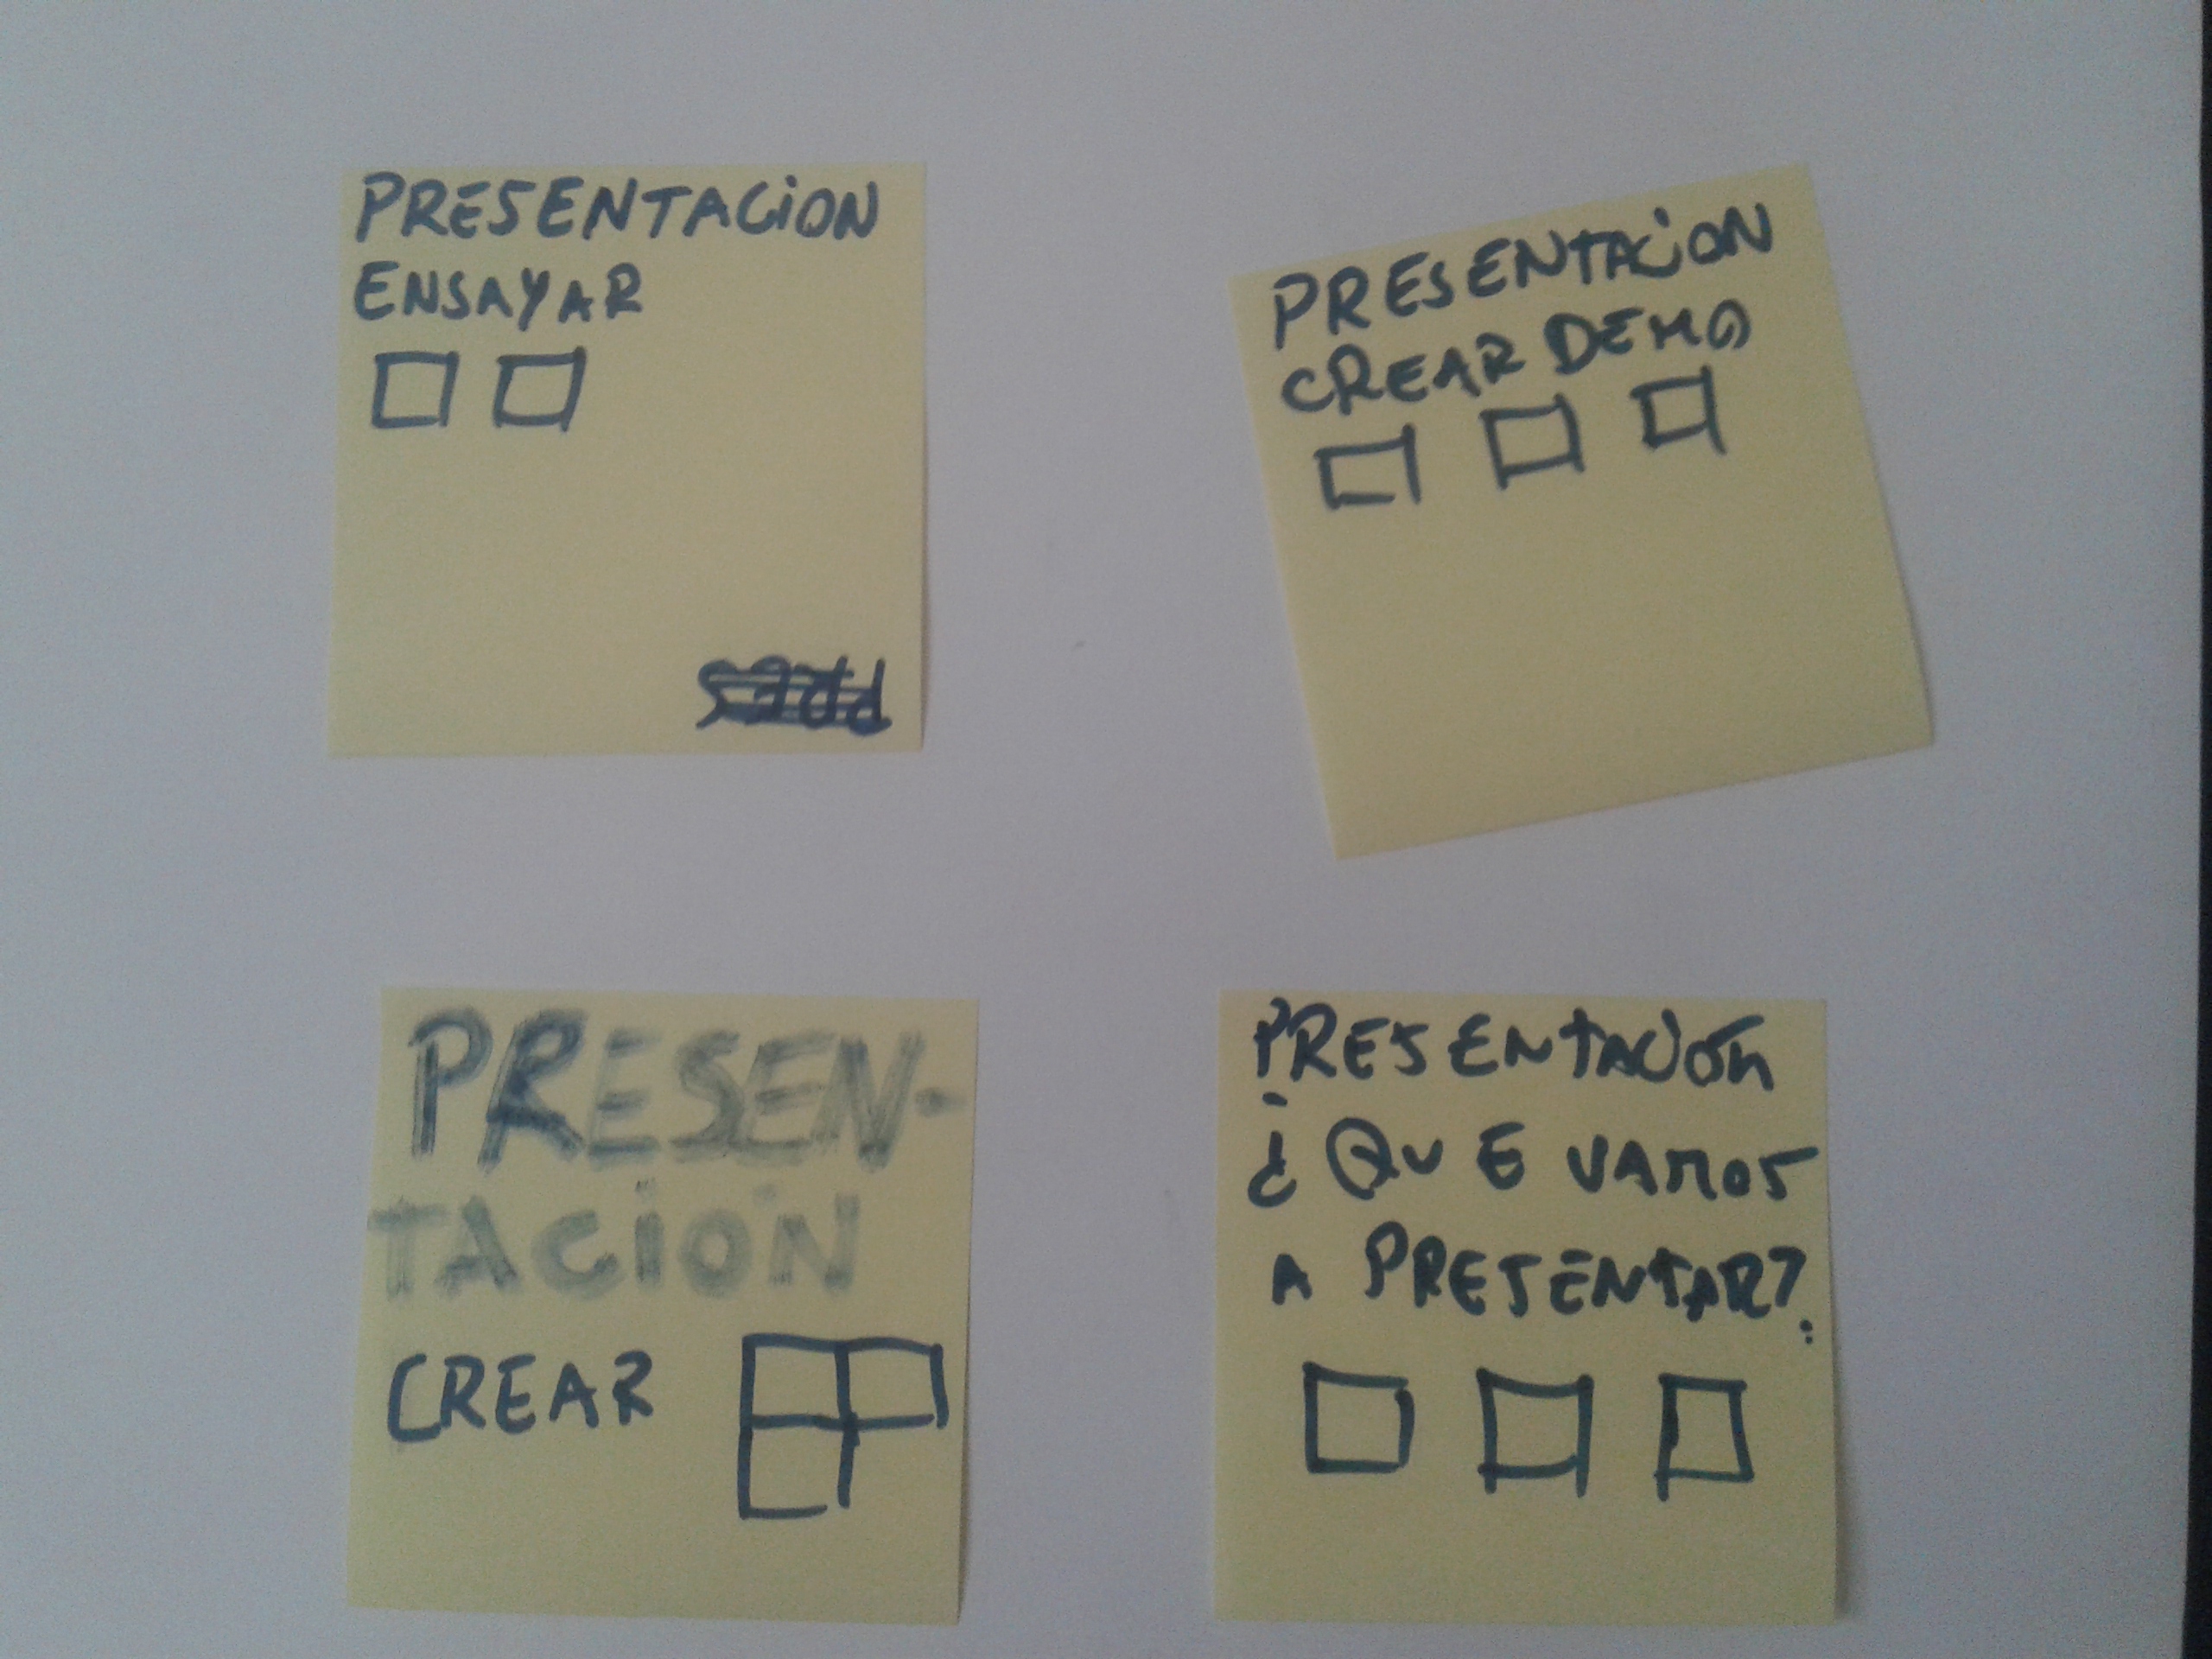 PRESENTACION
ENSAYAR
PRESENTACION
CREAR DEMO
PRESEN-
TACION
CREAR
PRESENTACIÓN
¿QUE VAMOS
A PRESENTAR?